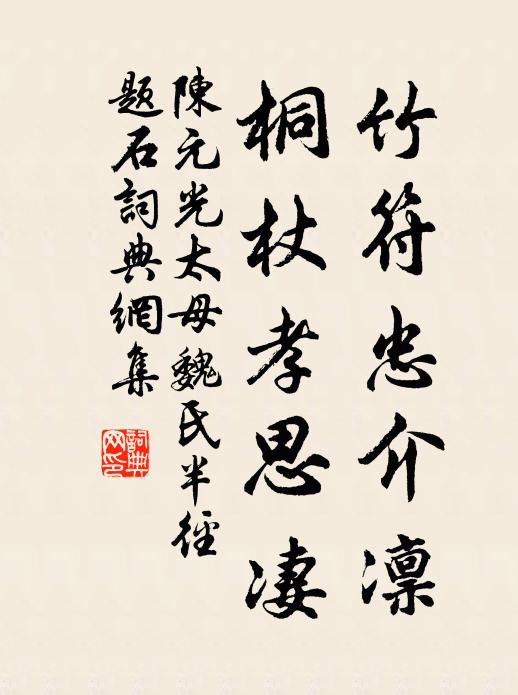 竹符忠介凛
桐杖孝思凄
陳元光太母魏氏半徑
題石詞典網集
詞典
网印